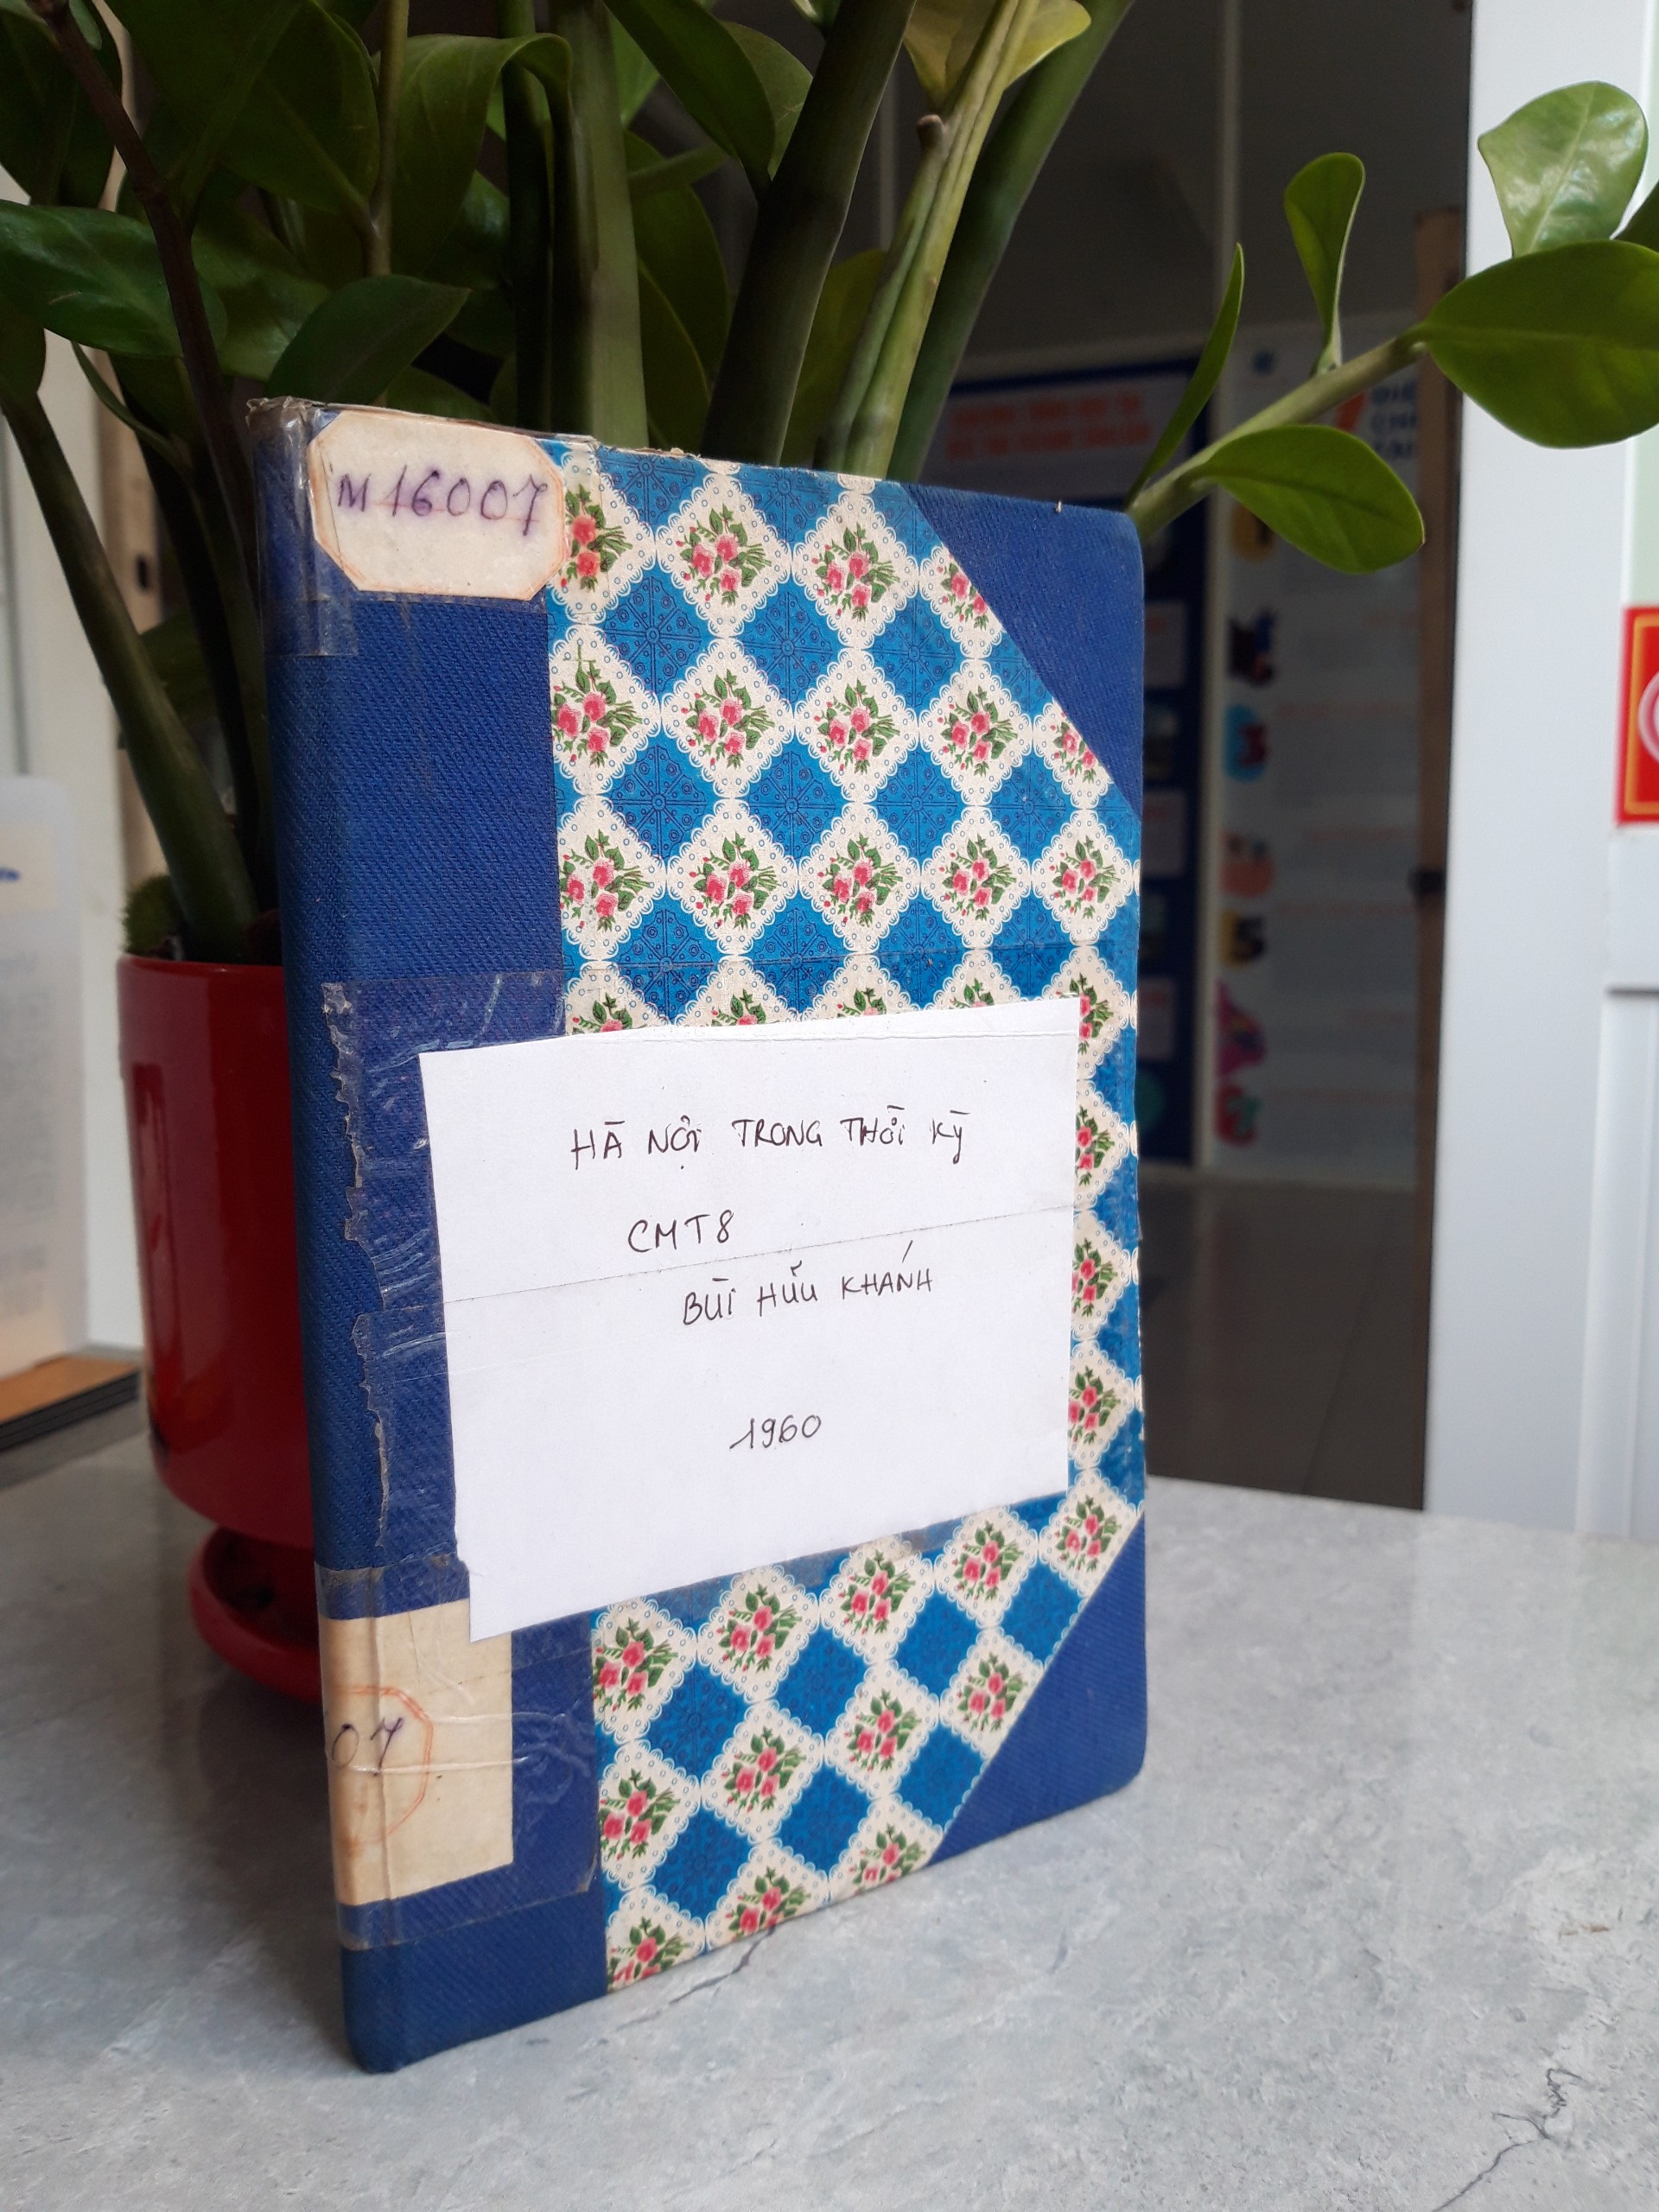 M 16007
HÀ NỘI TRONG THỜI KỲ
CMT8
BÙI HỮU KHÁNH
1960
07